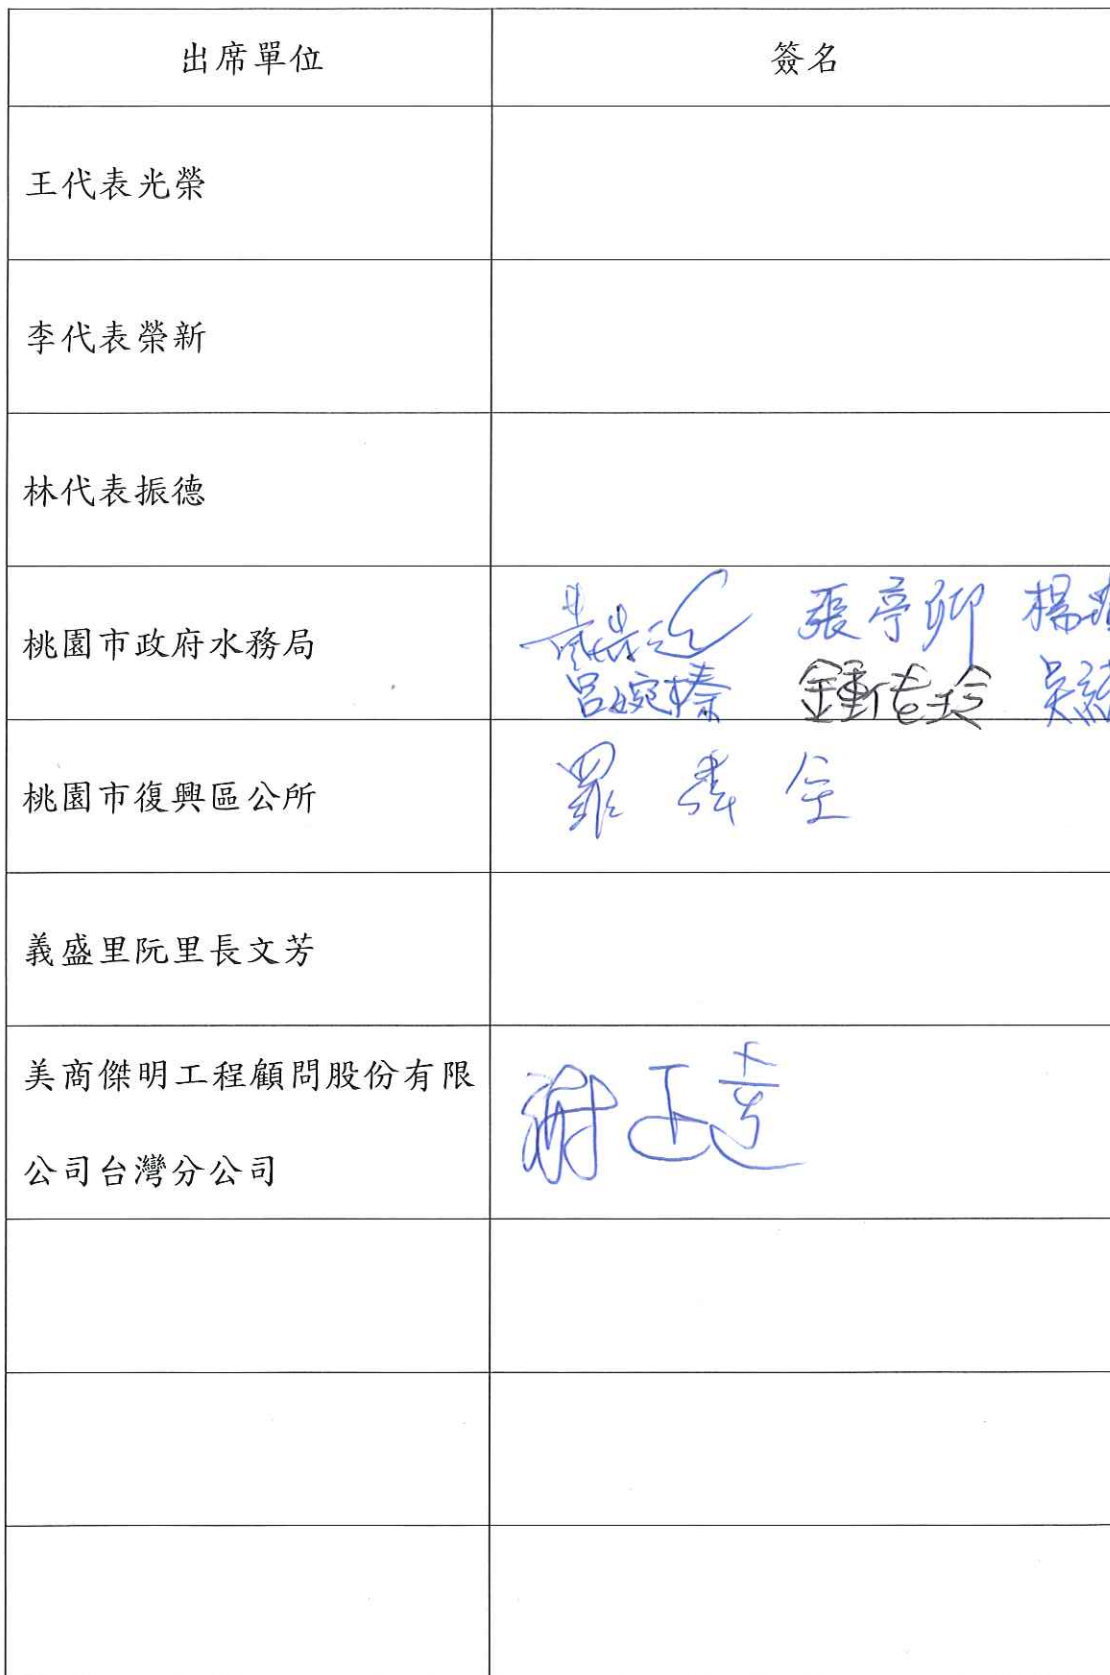 出席單位 簽名
王代表光榮
李代表榮新
林代表振德
桃園市政府水務局 張亭卿 楊
呂婉榛 鍾佬玲 吳
桃園市復興區公所 羅
義盛里阮里長文芳
美商傑明工程顧問股份有限
公司台灣分公司 謝正達